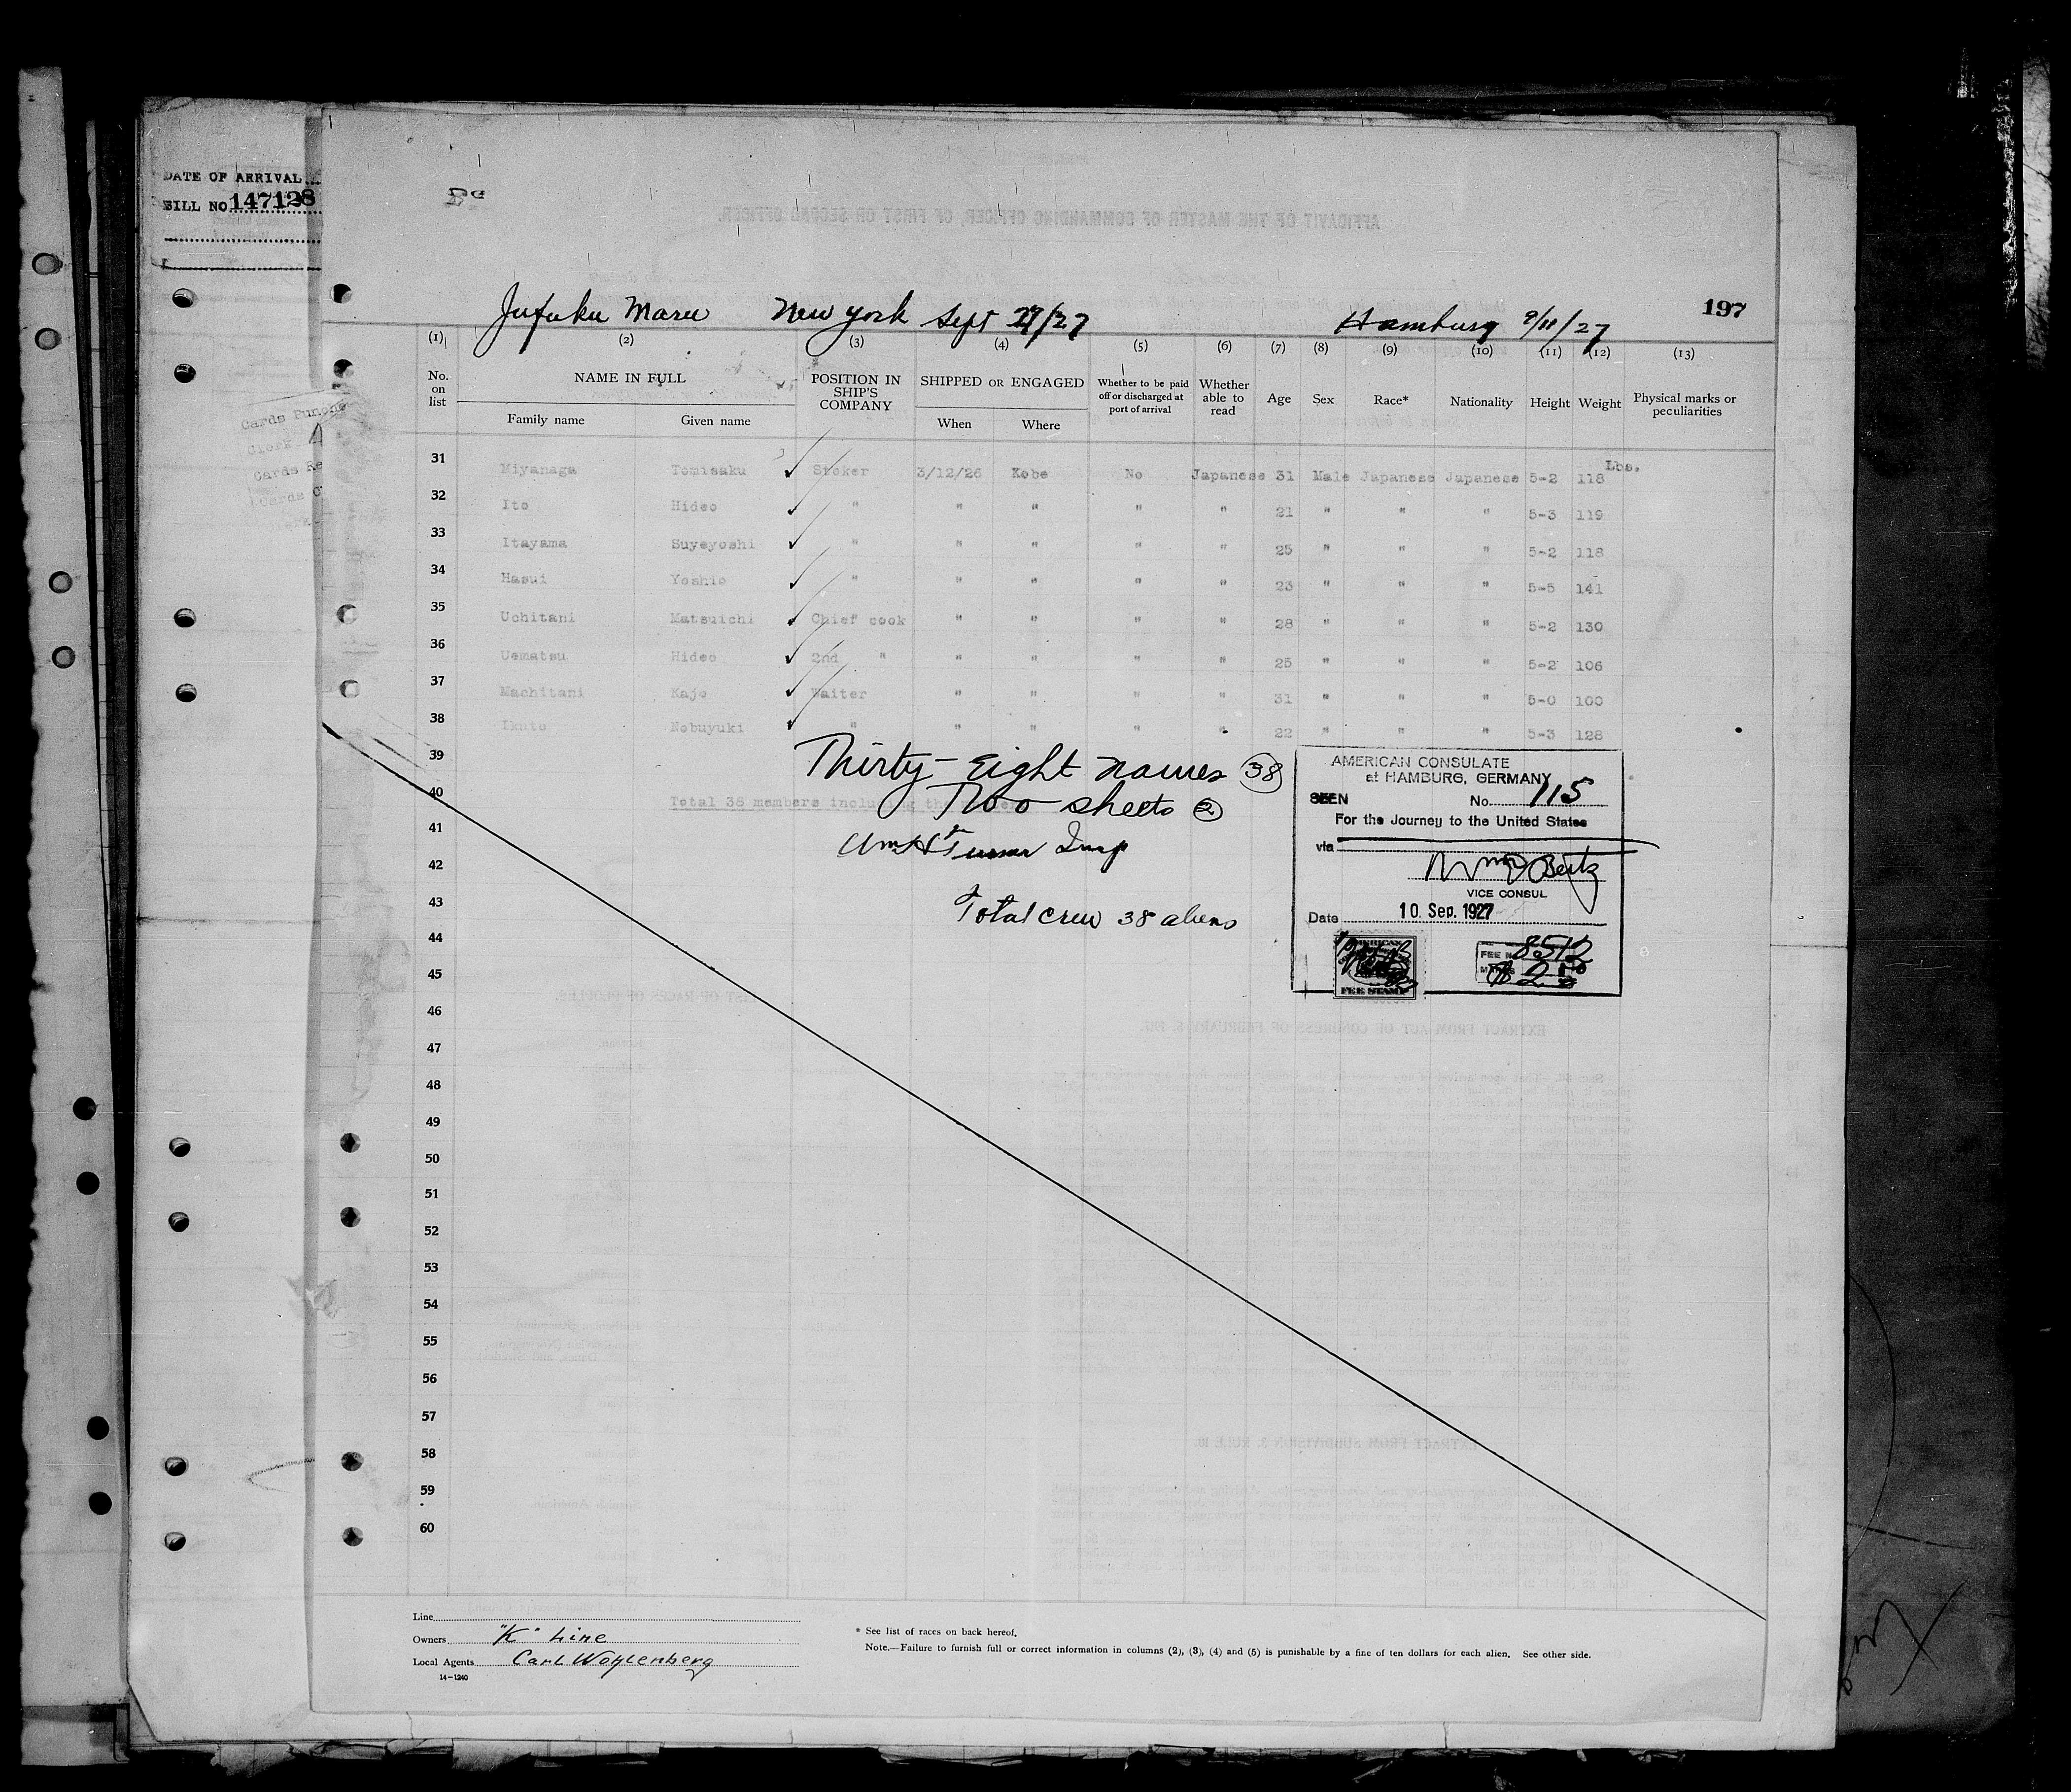 DATE OF ARRIVAL
BILL NO 147128
AFFIDAVIT OF THE MASTER OF COMMANDING OFFICER, OF FIRST OR SECOND OFFICER.
Jufuku Maru New York Sept 27/27 Hamburg 9/11/27 197
(1) (2) (3) (4) (5) (6) (7) (8) (9) (10) (11) (12) (13)
No. on list NAME IN FULL POSITION IN SHIP'S COMPANY SHIPPED OR ENGAGED Whether to be paid off or discharged at port of arrival Whether able to read Age Sex Race* Nationality Height Weight Physical marks or peculiarities
Family name Given name When Where
31 Miyanaga Tomisaku Stoker 3/12/26 Kobe No Japanese 31 Male Japanese Japanese 5-2 118 Lbs.
32 Ito Hideo " " " " " 21 " " " 5-3 119
33 Itayama Suyeyoshi " " " " " 25 " " " 5-2 118
34 Hasui Yoshio " " " " " 23 " " " 5-5 141
35 Uchitani Matsuichi Chief cook " " " " 28 " " " 5-2 130
36 Uematsu Hideo 2nd " " " " " 25 " " " 5-2 106
37 Machitani Kajo Waiter " " " " 31 " " " 5-0 100
38 Ikuto Nobuyuki " " " " " 22 " " " 5-3 128
39
Thirty-Eight names 38
40
Total 38 members including the
Two sheets 2
41
Wm H Turner Insp
42
43
Total crew 38 aliens
44
45
46
47
48
49
50
51
52
53
54
55
56
57
58
59
60
AMERICAN CONSULATE
at HAMBURG, GERMANY
SEEN No. 115
For the Journey to the United States
via
VICE CONSUL
Date 10. Sep. 1927
FEE STAMP
FEE No. 8512
LIST OF RACES OF PEOPLES.
EXTRACT FROM ACT OF CONGRESS OF FEBRUARY 5, 1917.
EXTRACT FROM SUBDIVISION 3, RULE 10.
Line
Owners "K" Line
Local Agents Carl Woylenberg
14-1240
* See list of races on back hereof.
Note.—Failure to furnish full or correct information in columns (2), (3), (4) and (5) is punishable by a fine of ten dollars for each alien. See other side.